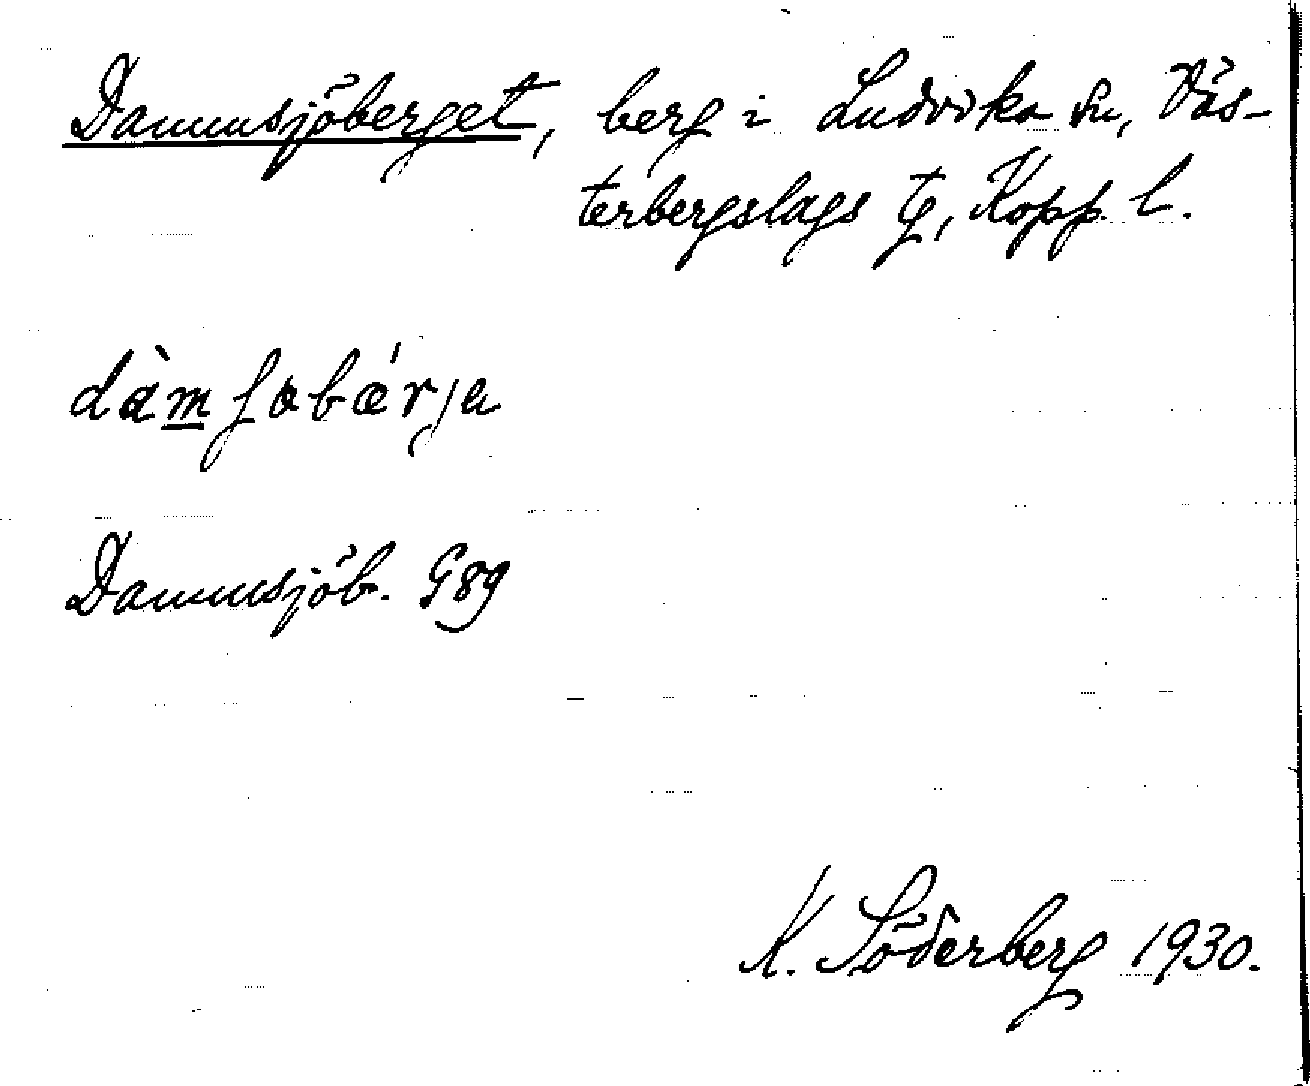 Dammsjöberget, berg i Ludvika sn, Väs-
terbergslags tg, Kopp. l.
dàm̲ ʃəbǽrja
Dammsjöb. G89
K. Söderberg 1930.